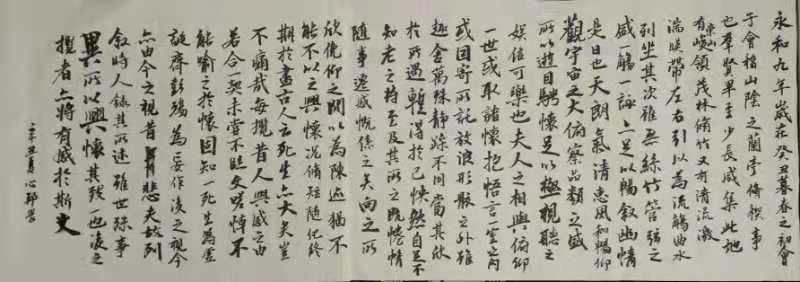 永和九年歲在癸丑暮春之初會
于會稽山陰之蘭亭脩稧事
也群賢畢至少長咸集此地
有崇山峻領茂林脩竹又有清流激
湍暎帶左右引以為流觴曲水
列坐其次雖無絲竹管弦之
盛一觴一詠亦足以暢敘幽情
是日也天朗氣清惠風和暢仰
觀宇宙之大俯察品類之盛
所以遊目騁懷足以極視聽之
娛信可樂也夫人之相與俯仰
一世或取諸懷抱悟言一室之內
或因寄所託放浪形骸之外雖
趣舍萬殊靜躁不同當其欣
於所遇暫得於己怏然自足不
知老之將至及其所之既惓情
隨事遷感慨係之矣向之所
欣俛仰之間以為陳迹猶不
能不以之興懷況脩短隨化終
期於盡古人云死生亦大矣豈
不痛哉每攬昔人興感之由
若合一契未嘗不臨文嗟悼不
能喻之於懷固知一死生為虛
誕齊彭殤為妄作後之視今
亦由今之視昔悲夫故列
敘時人錄其所述雖世殊事
異所以興懷其致一也後之
攬者亦將有感於斯文
辛丑夏心